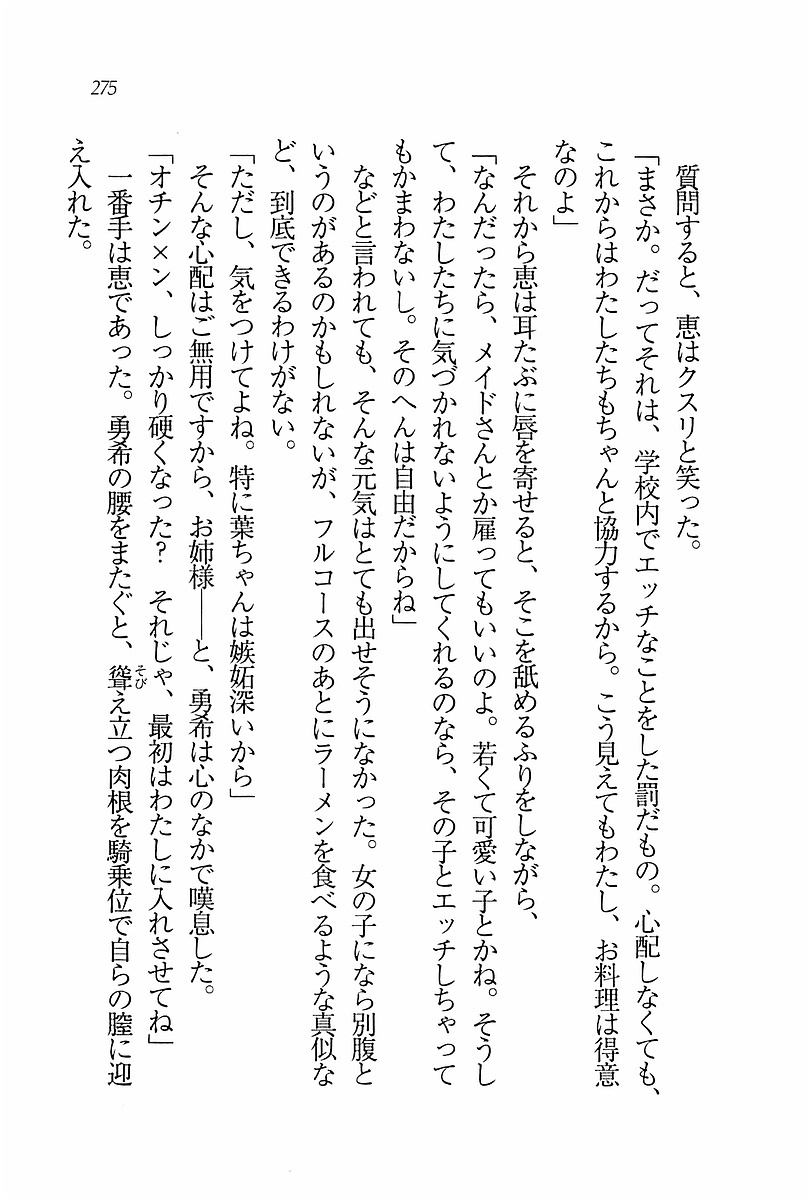 275
質問すると、恵はクスリと笑った。
「まさか。だってそれは、学校内でエッチなことをした罰だもの。心配しなくても、
これからはわたしたちもちゃんと協力するから。こう見えてもわたし、お料理は得意
なのよ」
それから恵は耳たぶに唇を寄せると、そこを舐めるふりをしながら、
「なんだったら、メイドさんとか雇ってもいいのよ。若くて可愛い子とかね。そうし
て、わたしたちに気づかれないようにしてくれるのなら、その子とエッチしちゃって
もかまわないし。そのへんは自由だからね」
などと言われても、そんな元気はとても出せそうになかった。女の子になら別腹と
いうのがあるのかもしれないが、フルコースのあとにラーメンを食べるような真似な
ど、到底できるわけがない。
「ただし、気をつけてよね。特に葉ちゃんは嫉妬深いから」
そんな心配はご無用ですから、お姉様――と、勇希は心のなかで嘆息した。
「オチン×ン、しっかり硬くなった？　それじゃ、最初はわたしに入れさせてね」
一番手は恵であった。勇希の腰をまたぐと、聳え立つ肉根を騎乗位で自らの膣に迎
そび
え入れた。